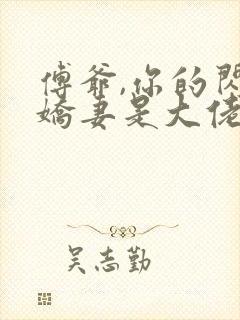 傅爺,你的閃
嬌妻是大佬
吳志勤